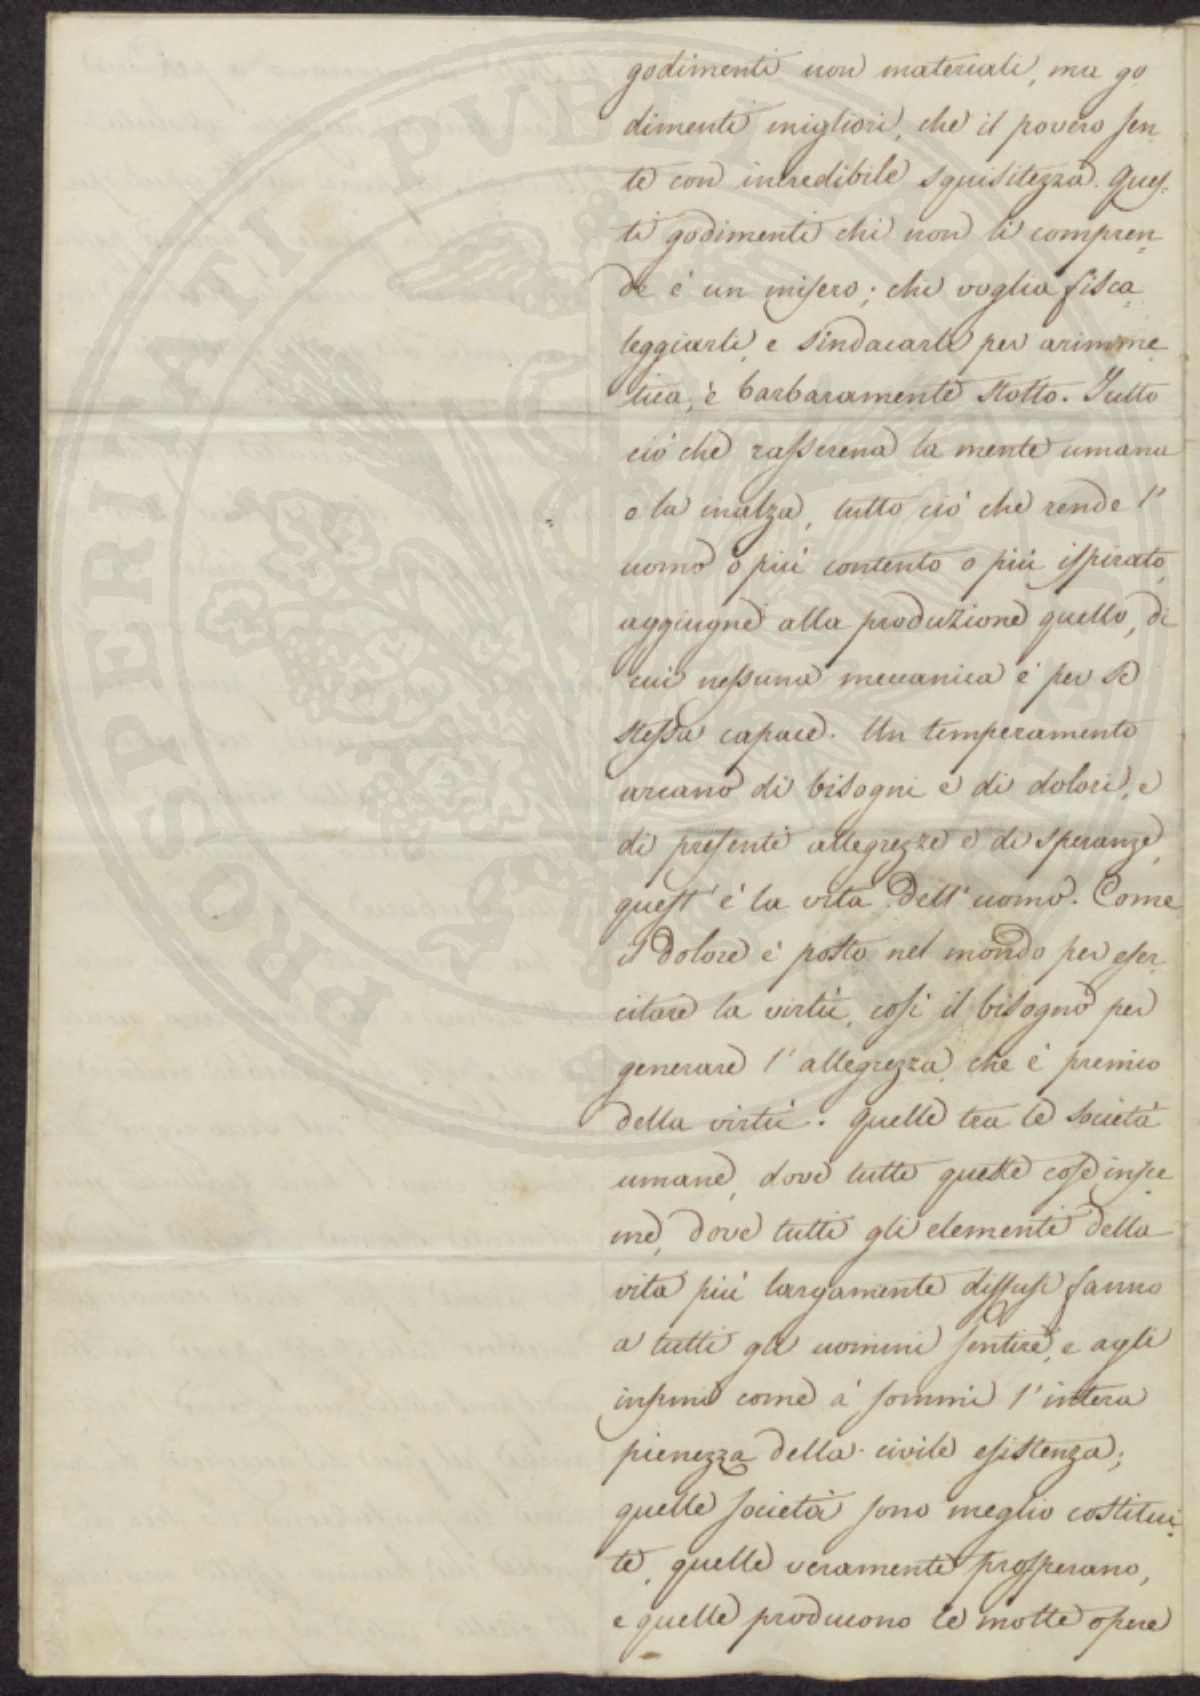 godimenti non materiali, ma go
dimenti migliori, che il povero sen
te con incredibile squisitezza. Ques-
ti godimenti chi non li compren
de è un misero; chi voglia fisca
leggiarli, e sindacarli per arimme
tica, è barbaramente stolto. Tutto
ciò che rasserena la mente umana
e la inalza, tutto ciò che rende l'
uomo o più contento o più ispirato,
aggiugne alla produzione quello, di
cui nessuna meccanica è per se
stessa capace. Un temperamento
arcano di bisogni e di dolori, e
di presenti allegrezze e di speranze,
quest' è la vita dell' uomo. Come
il dolore è posto nel mondo per eser
citare la virtù, così il bisogno per
generare l' allegrezza, che è premio
della virtù. Quelle tra le società
umane, dove tutte queste cose insie
me, dove tutti gli elementi della
vita più largamente diffusi fanno
a tutti gli uomini sentire, e agli
infimi come a' sommi l' intera
pienezza della civile esistenza;
quelle società sono meglio costitui
te, quelle veramente prosperano,
e quelle producono le molte opere
PROSPERITATI PVBLI